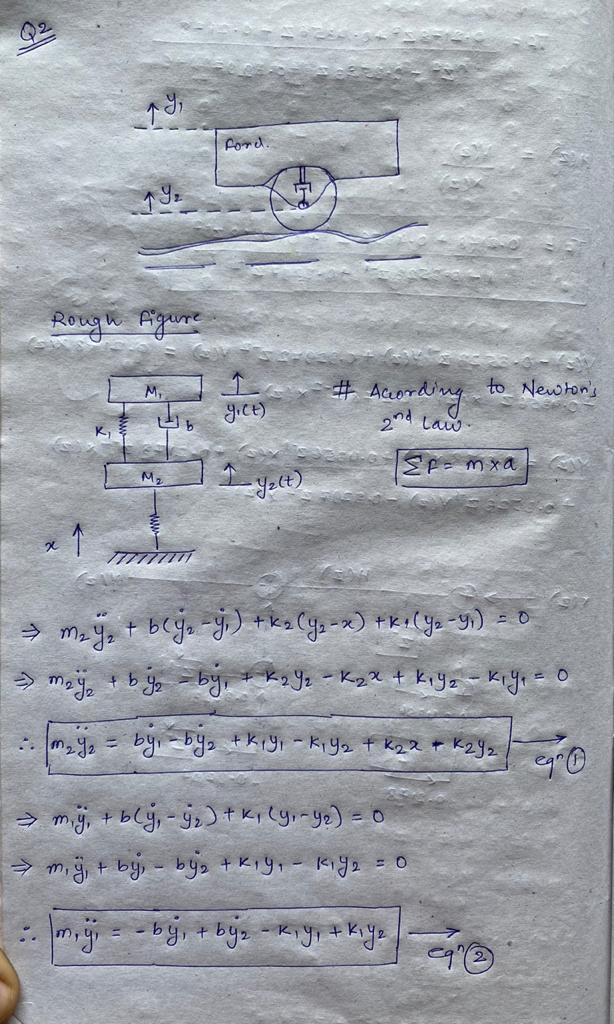 Q2
↑ y₁
Ford.
↑ y₂
Rough Figure.
M₁
↑ y₁(t)
K₁
b
M₂
↑ y₂(t)
x ↑
# According to Newton's
2nd Law.
ΣF = m×a
⇒ m₂ÿ₂ + b(ẏ₂-ẏ₁) + K₂(y₂-x) + K₁(y₂-y₁) = 0
⇒ m₂ÿ₂ + bẏ₂ - bẏ₁ + K₂y₂ - K₂x + K₁y₂ - K₁y₁ = 0
∴ m₂ÿ₂ = bẏ₁ - bẏ₂ + K₁y₁ - K₁y₂ + K₂x K₂y₂ → eqⁿ ①
⇒ m₁ÿ₁ + b(ẏ₁-ẏ₂) + K₁(y₁-y₂) = 0
⇒ m₁ÿ₁ + bẏ₁ - bẏ₂ + K₁y₁ - K₁y₂ = 0
∴ m₁ÿ₁ = -bẏ₁ + bẏ₂ - K₁y₁ + K₁y₂ → eqⁿ ②